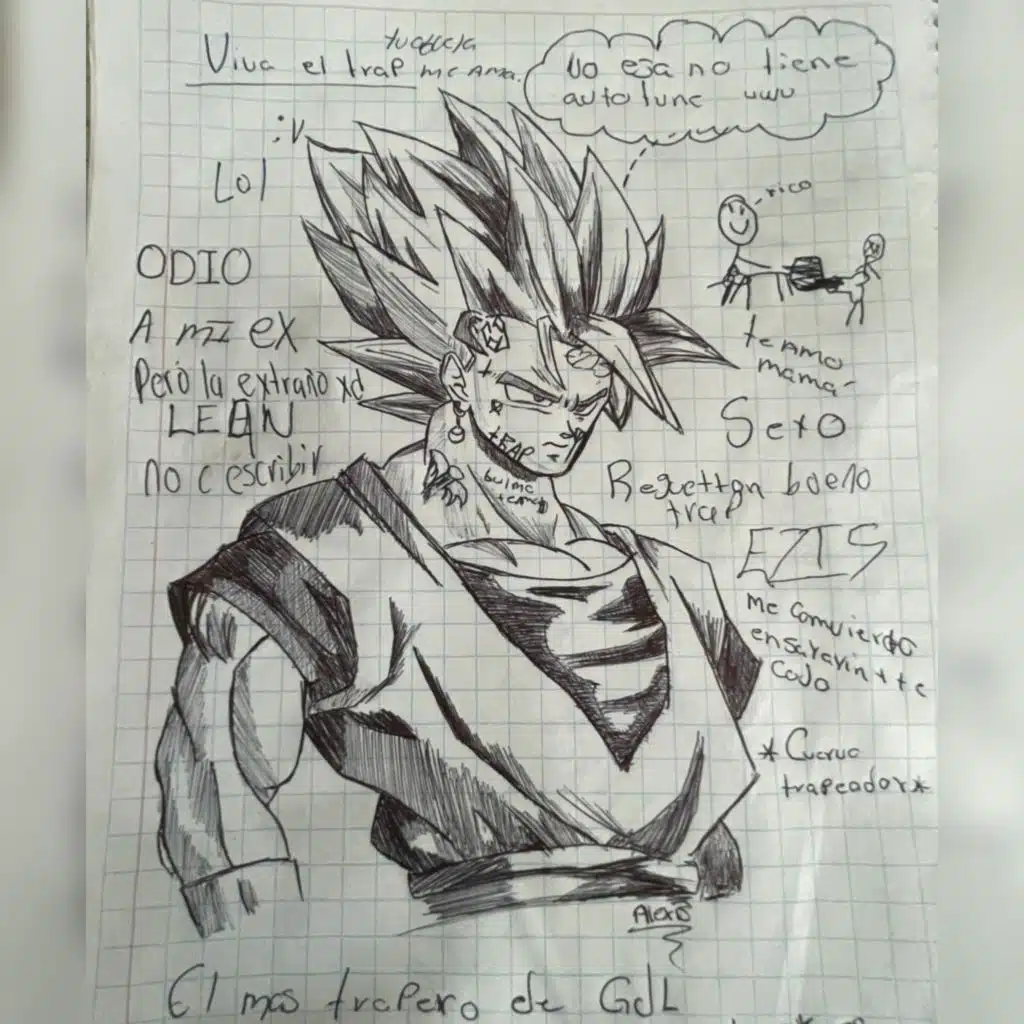 Viva el trap
tu abuela
me ama.
No esa no tiene
auto tune uwu
:v
Lol
rico
ODIO
A mi ex
Pero la extraño xd
LEAN
no c escribir
te amo
mamá
Sexo
TRAP
Regetton bueno
trap
EZTS
me comvierdo
cado
*Cucruc
trapeador*
Alexo
El mas trapero de GdL